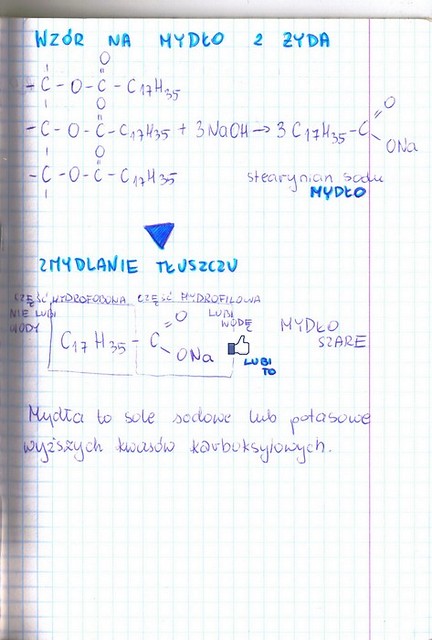 WZÓR NA MYDŁO Z ŻYDA
O
- C - O - C - C17H35
O
- C - O - C - C17H35 + 3NaOH → 3 C17H35 - C
O
ONa
O
- C - O - C - C17H35
stearynian sodu
MYDŁO
ZMYDLANIE TŁUSZCZU
CZĘŚĆ HYDROFOBOWA CZĘŚĆ HYDROFILOWA
NIE LUBI WODY
LUBI WODĘ
C17H35 - C
O
ONa
LUBI TO
MYDŁO SZARE
Mydła to sole sodowe lub potasowe
wyższych kwasów karboksylowych.